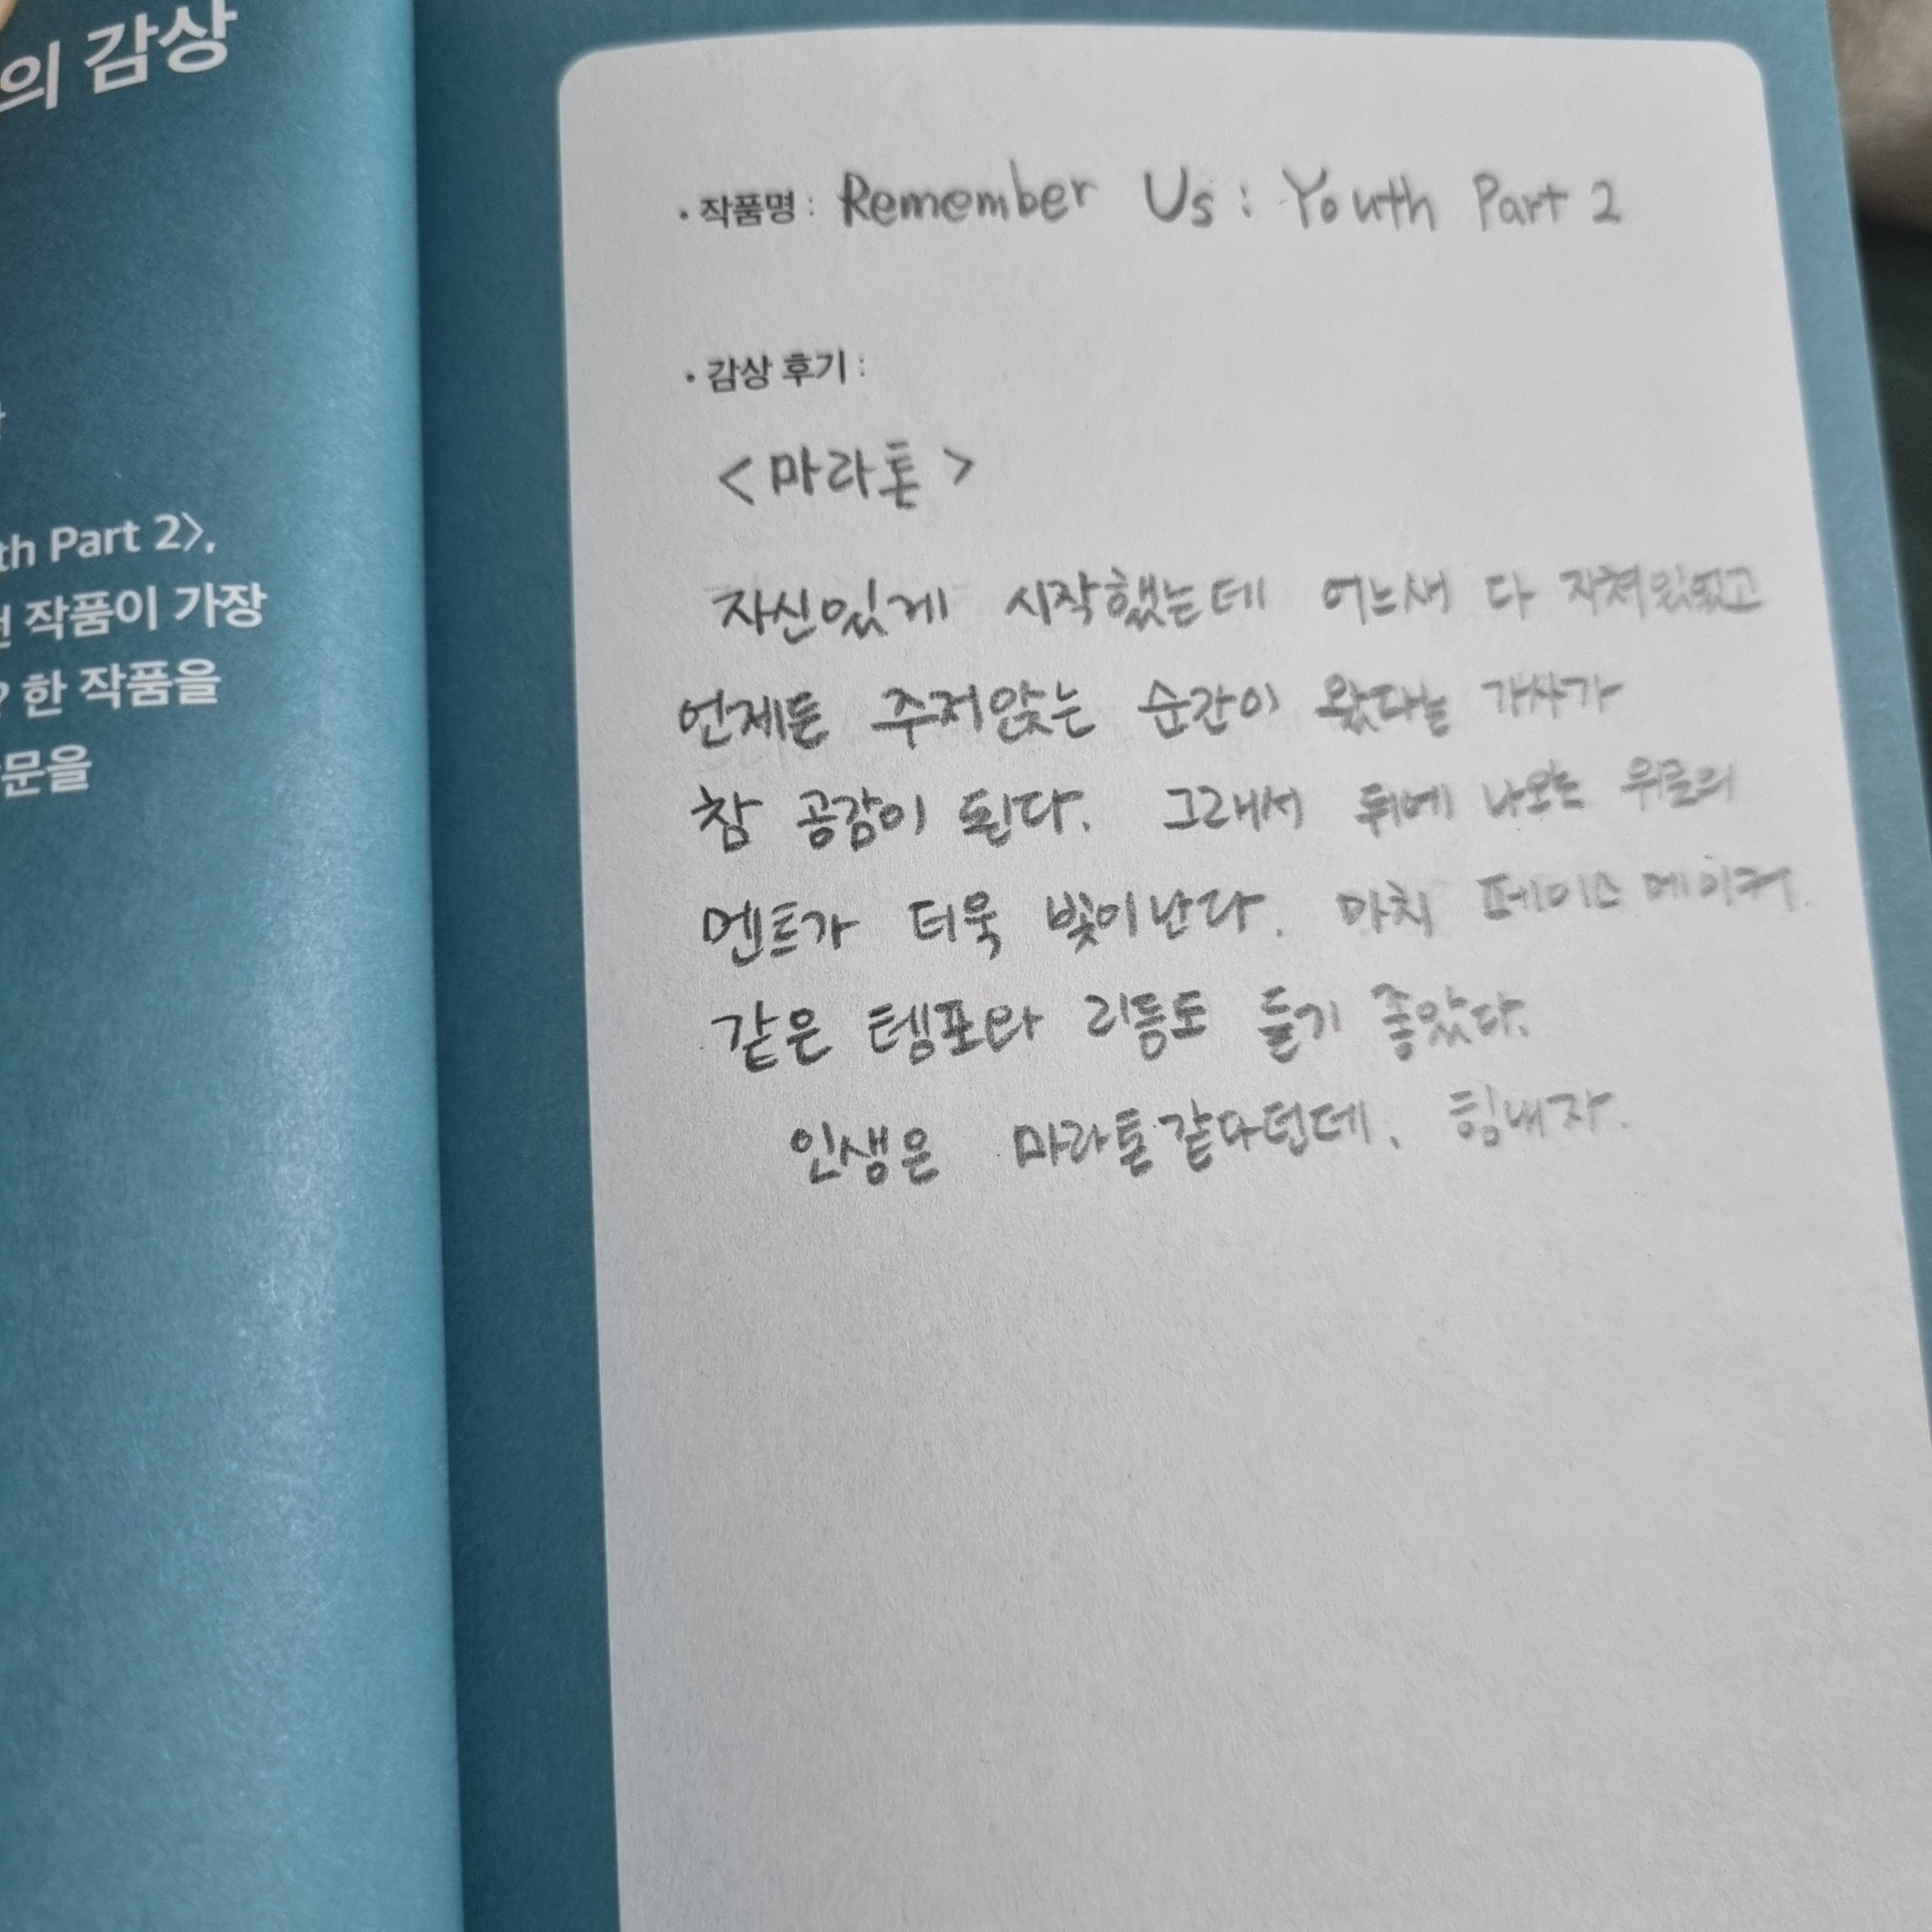 의 감상
th Part 2〉,
작품이 가장
? 한 작품을
문을
• 작품명 : Remember Us : Youth Part 2
• 감상 후기 :
< 마라톤 >
자신있게 시작했는데 어느새 다 지쳐있었고
언제든 주저앉는 순간이 왔다는 가사가
참 공감이 된다. 그래서 뒤에 나오는 위로의
멘트가 더욱 빛이난다. 마치 페이스메이커
같은 템포와 리듬도 듣기 좋았다.
인생은 마라톤같다던데, 힘내자.